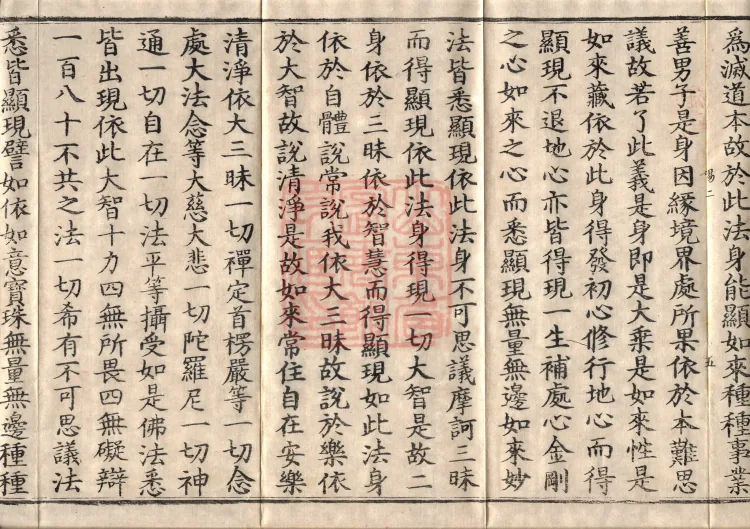 為滅道本故於此法身能顯如來種種事業
善男子是身因緣境界處所果依於本難思
議故若了此義是身即是大乗是如來性是
如來藏依於此身得發初心修行地心而得
顯現不退地心亦皆得現一生補處心金剛
之心如來之心而悉顯現無量無邊如來妙
法皆悉顯現依此法身不可思議摩訶三昧
而得顯現依此法身得現一切大智是故二
身依於三昧依於智慧而得顯現如此法身
依於自體說常說我依大三昧故說於樂依
於大智故說清淨是故如來常住自在安樂
清淨依大三昧一切禪定首楞嚴等一切念
處大法念等大慈大悲一切陀羅尼一切神
通一切自在一切法平等攝受如是佛法悉
皆出現依此大智十力四無所畏四無礙辯
一百八十不共之法一切希有不可思議法
悉皆顯現譬如依如意寶珠無量無邊種種